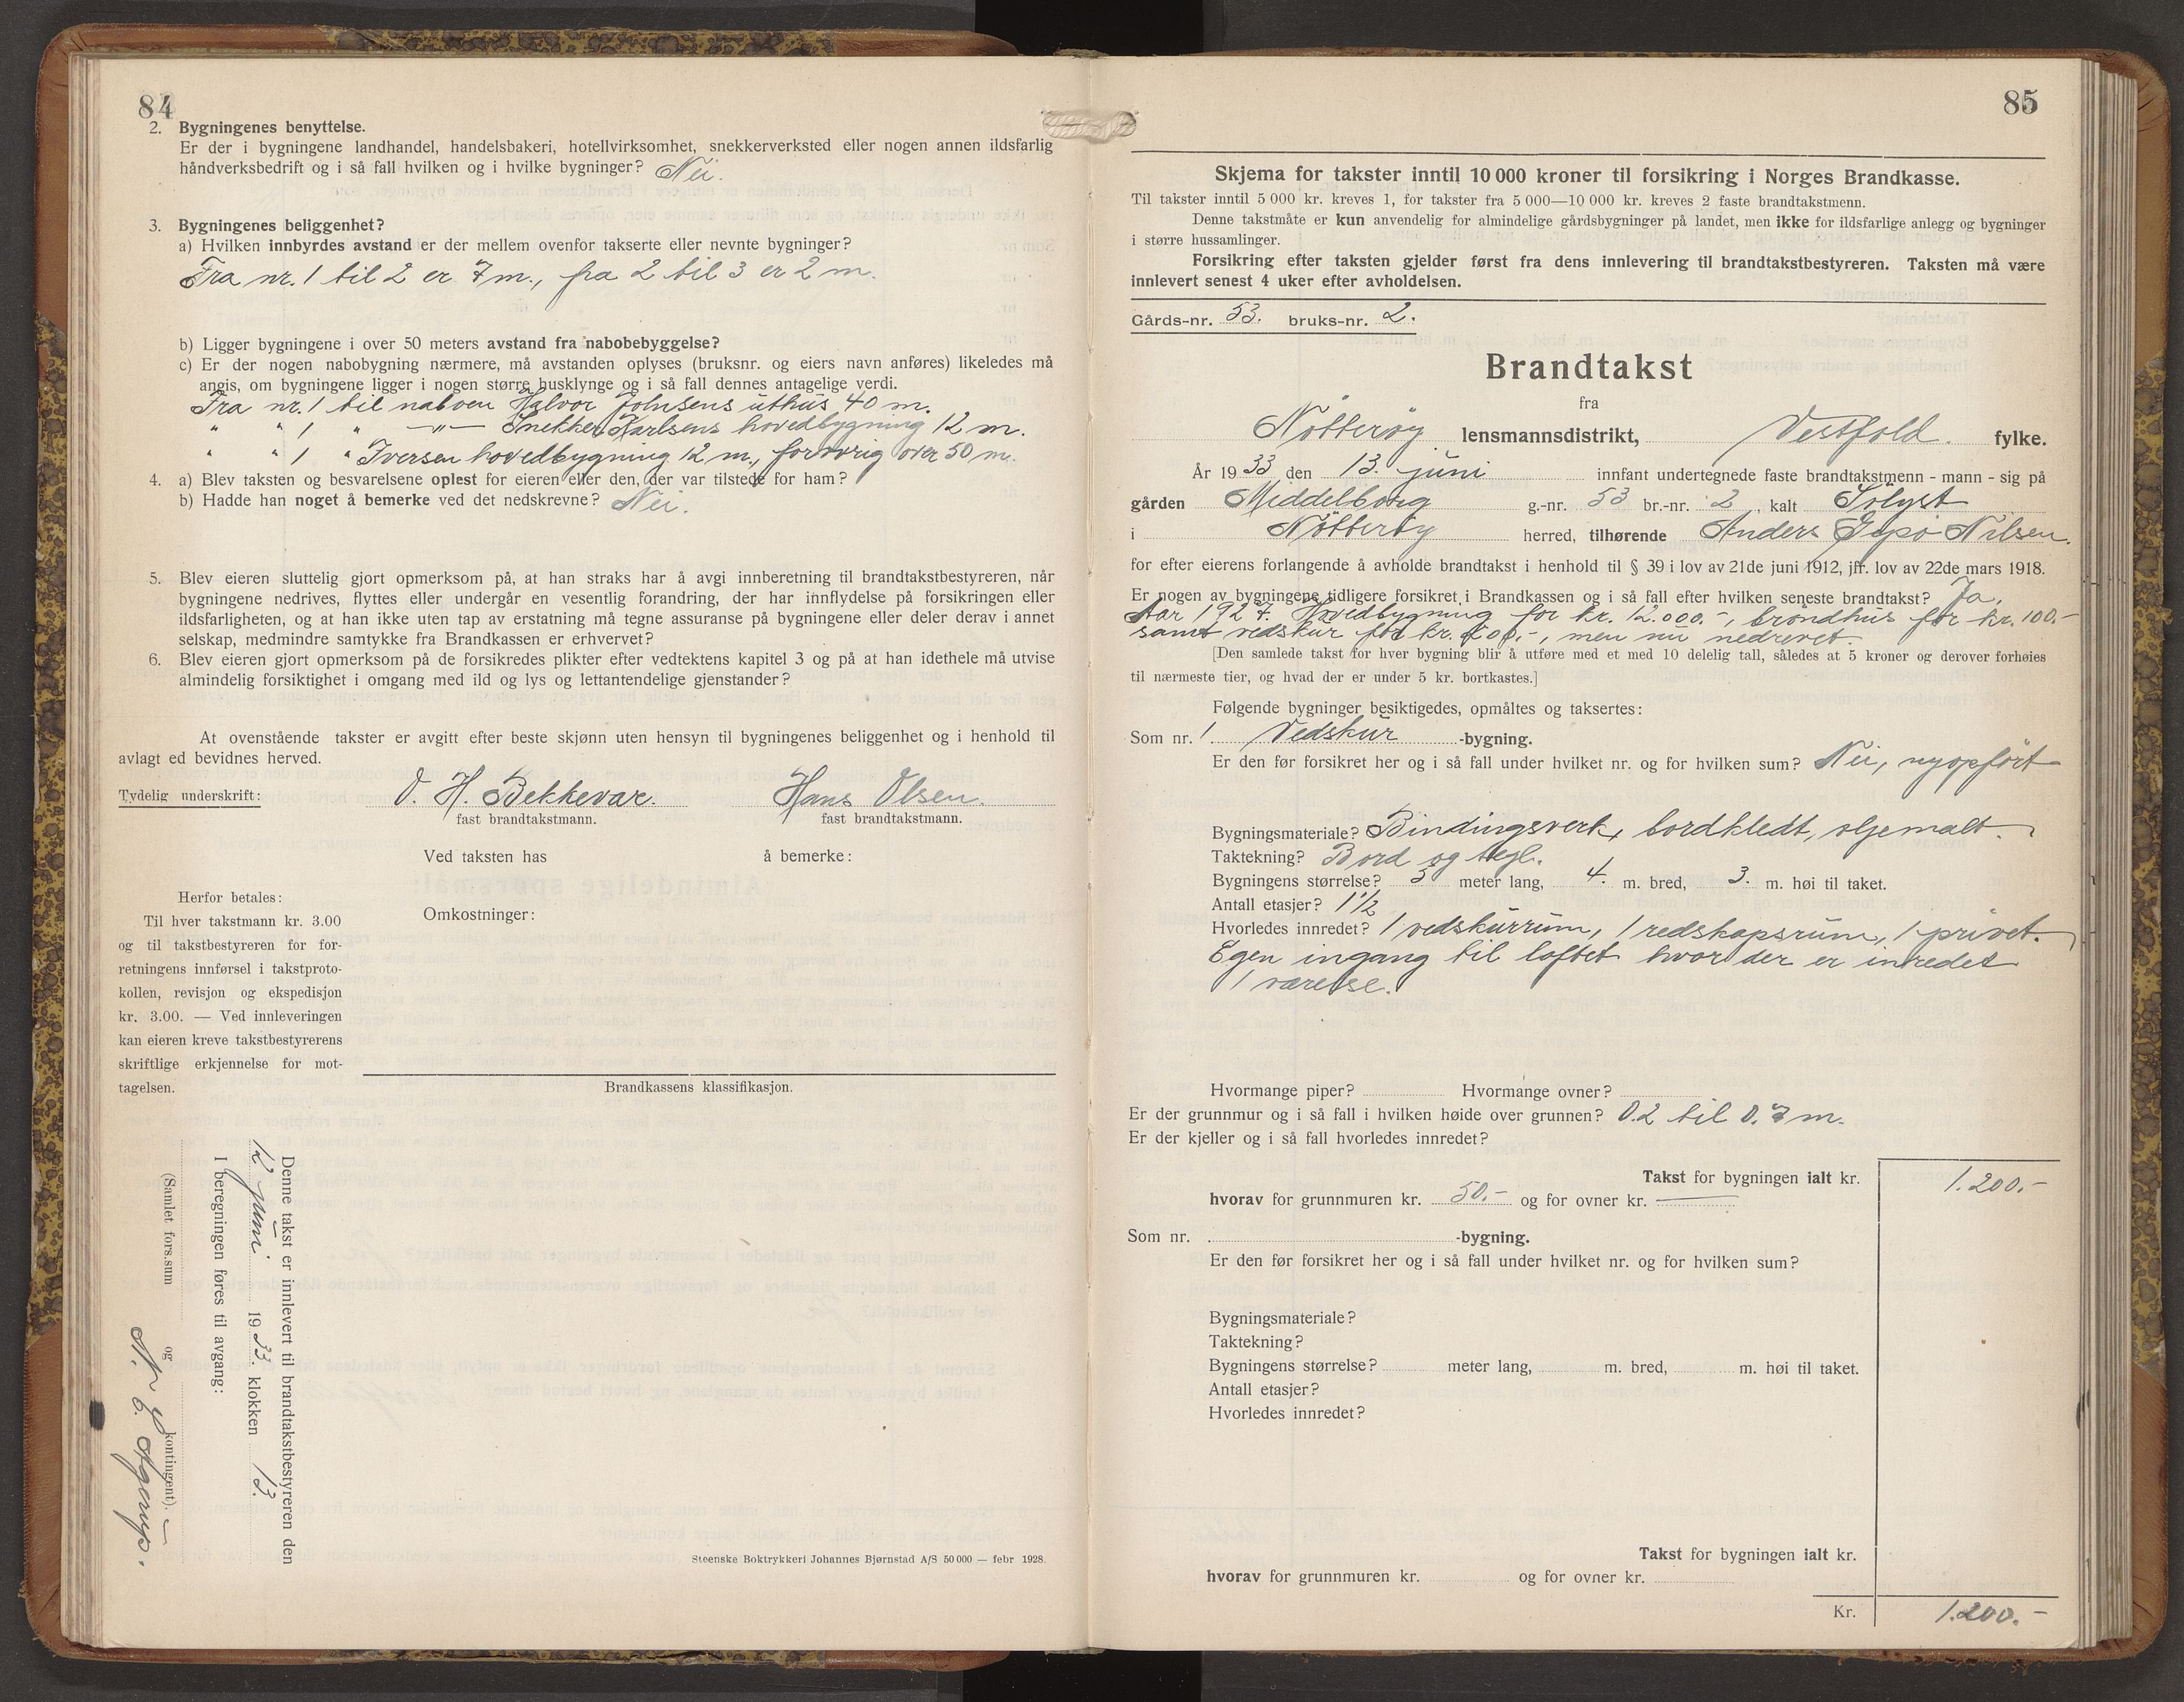 84
2. Bygningenes benyttelse.
Er der i bygningene landhandel, handelsbakeri, hotellvirksomhet, snekkerverksted eller nogen annen ildsfarlig
håndverksbedrift og i så fall hvilken og i hvilke bygninger? Nei.
3. Bygningenes beliggenhet?
a) Hvilken innbyrdes avstand er der mellem ovenfor takserte eller nevnte bygninger?
Fra nr. 1 til 2 er 7 m., fra 2 til 3 er 2 m.
b) Ligger bygningene i over 50 meters avstand fra nabobebyggelse?
c) Er der nogen nabobygning nærmere, må avstanden oplyses (bruksnr. og eiers navn anføres) likeledes må
angis, om bygningene ligger i nogen større husklynge og i så fall dennes antagelige verdi.
Fra nr. 1 til naboen Halvor Johnsens uthus 40 m.
" " 1 " —"— Snekker Karlsens hovedbygning 12 m.
" " 1 " Iversen hovedbygning 12 m., forøvrig over 50 m.
4. a) Blev taksten og besvarelsene oplest for eieren eller den, der var tilstede for ham?
b) Hadde han noget å bemerke ved det nedskrevne? Nei.
5. Blev eieren sluttelig gjort opmerksom på, at han straks har å avgi innberetning til brandtakstbestyreren, når
bygningene nedrives, flyttes eller undergår en vesentlig forandring, der har innflydelse på forsikringen eller
ildsfarligheten, og at han ikke uten tap av erstatning må tegne assuranse på bygningene eller deler derav i annet
selskap, medmindre samtykke fra Brandkassen er erhvervet?
6. Blev eieren gjort opmerksom på de forsikredes plikter efter vedtektens kapitel 3 og på at han idethele må utvise
almindelig forsiktighet i omgang med ild og lys og lettantendelige gjenstander?
At ovenstående takster er avgitt efter beste skjønn uten hensyn til bygningenes beliggenhet og i henhold til
avlagt ed bevidnes herved.
Tydelig underskrift: O. H. Bekkevar. Hans Olsen.
fast brandtakstmann. fast brandtakstmann.
Ved taksten has å bemerke:
Herfor betales:
Til hver takstmann kr. 3.00
og til takstbestyreren for for-
retningens innførsel i takstproto-
kollen, revisjon og ekspedisjon
kr. 3.00. — Ved innleveringen
kan eieren kreve takstbestyrerens
skriftlige erkjennelse for mot-
tagelsen.
Omkostninger:
Brandkassens klassifikasjon.
Denne takst er innlevert til brandtakstbestyreren den
12 juni 1933. klokken 13.
I beregningen føres til avgang:
(Samlet fors.sum og kontingent).
Agerup.
Steenske Boktrykkeri Johannes Bjørnstad A/S 50 000 — febr 1928.
85
Skjema for takster inntil 10 000 kroner til forsikring i Norges Brandkasse.
Til takster inntil 5 000 kr. kreves 1, for takster fra 5 000—10 000 kr. kreves 2 faste brandtakstmenn.
Denne takstmåte er kun anvendelig for almindelige gårdsbygninger på landet, men ikke for ildsfarlige anlegg og bygninger
i større hussamlinger.
Forsikring efter taksten gjelder først fra dens innlevering til brandtakstbestyreren. Taksten må være
innlevert senest 4 uker efter avholdelsen.
Gårds-nr. 53. bruks-nr. 2.
Brandtakst
fra
Nötteröy lensmannsdistrikt, Vestfold. fylke.
År 1933 den 13. juni innfant undertegnede faste brandtakstmenn - mann - sig på
gården Middelborg g.-nr. 53 br.-nr. 2, kalt Solyst
i Nötteröy herred, tilhørende Anders Jepö Nilsen.
for efter eierens forlangende å avholde brandtakst i henhold til § 39 i lov av 21de juni 1912, jfr. lov av 22de mars 1918.
Er nogen av bygningene tidligere forsikret i Brandkassen og i så fall efter hvilken seneste brandtakst? Ja,
Aar 1927. Hovedbygning for kr. 12.000.-, bröndhus for kr. 100.-
samt vedskur for kr. 600.-, men nu nedrevet.
[Den samlede takst for hver bygning blir å utføre med et med 10 delelig tall, således at 5 kroner og derover forhøies
til nærmeste tier, og hvad der er under 5 kr. bortkastes.]
Følgende bygninger besiktigedes, opmåltes og taksertes:
Som nr. 1 Vedskur -bygning.
Er den før forsikret her og i så fall under hvilket nr. og for hvilken sum? Nei, nyopfört
Bygningsmateriale? Bindingsverk, bordkledt, oljemalt.
Taktekning? Bord og tegl.
Bygningens størrelse? 5 meter lang, 4. m. bred, 3. m. høi til taket.
Antall etasjer? 1 1/2
Hvorledes innredet? 1 vedskurrum, 1 redskapsrum, 1 privet.
Egen ingang til loftet hvor der er inredet
1 værelse.
Hvormange piper? Hvormange ovner?
Er der grunnmur og i så fall i hvilken høide over grunnen? 0.2 til 0.7 m.
Er der kjeller og i så fall hvorledes innredet?
Takst for bygningen ialt kr. 1.200.-
hvorav for grunnmuren kr. 50.- og for ovner kr. —
Som nr. -bygning.
Er den før forsikret her og i så fall under hvilket nr. og for hvilken sum?
Bygningsmateriale?
Taktekning?
Bygningens størrelse? meter lang, m. bred, m. høi til taket.
Antall etasjer?
Hvorledes innredet?
Takst for bygningen ialt kr.
hvorav for grunnmuren kr. og for ovner kr.
Kr. 1.200.-